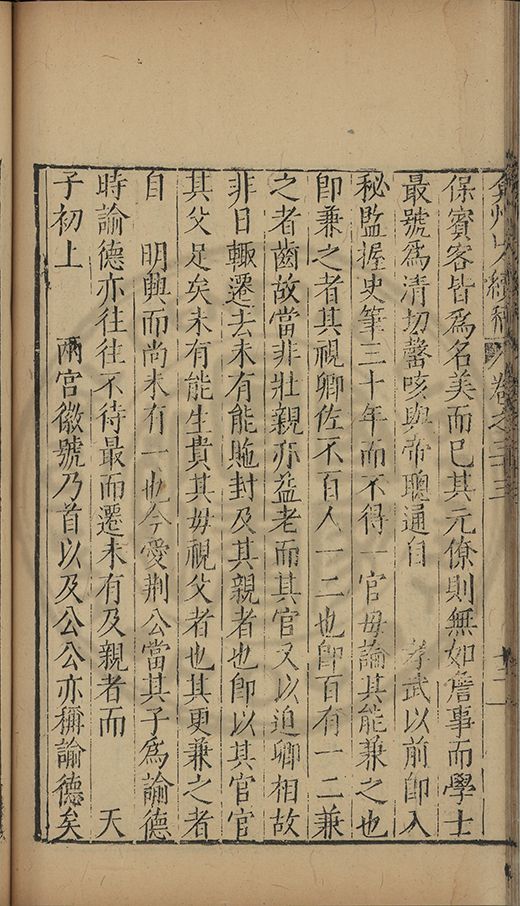 弇州山人續稿 卷之三十三 十二
保賓客皆爲名美而已其元僚則無如詹事而學士
最號爲清切謦咳與帝聰通自 孝武以前即入
秘監握史筆三十年而不得一官毋論其能兼之也
即兼之者其視卿佐不百人一二也即百有一二兼
之者齒故當非壯親亦益老而其官又以迫卿相故
非日輙遷去未有能貤封及其親者也即以其官官
其父足矣未有能生貴其母視父者也其更兼之者
自 明興而尚未有一也今愛荆公當其子爲諭德
時諭德亦往往不待最而遷未有及親者而 天
子初上 兩宫徽號乃首以及公公亦稱諭德矣